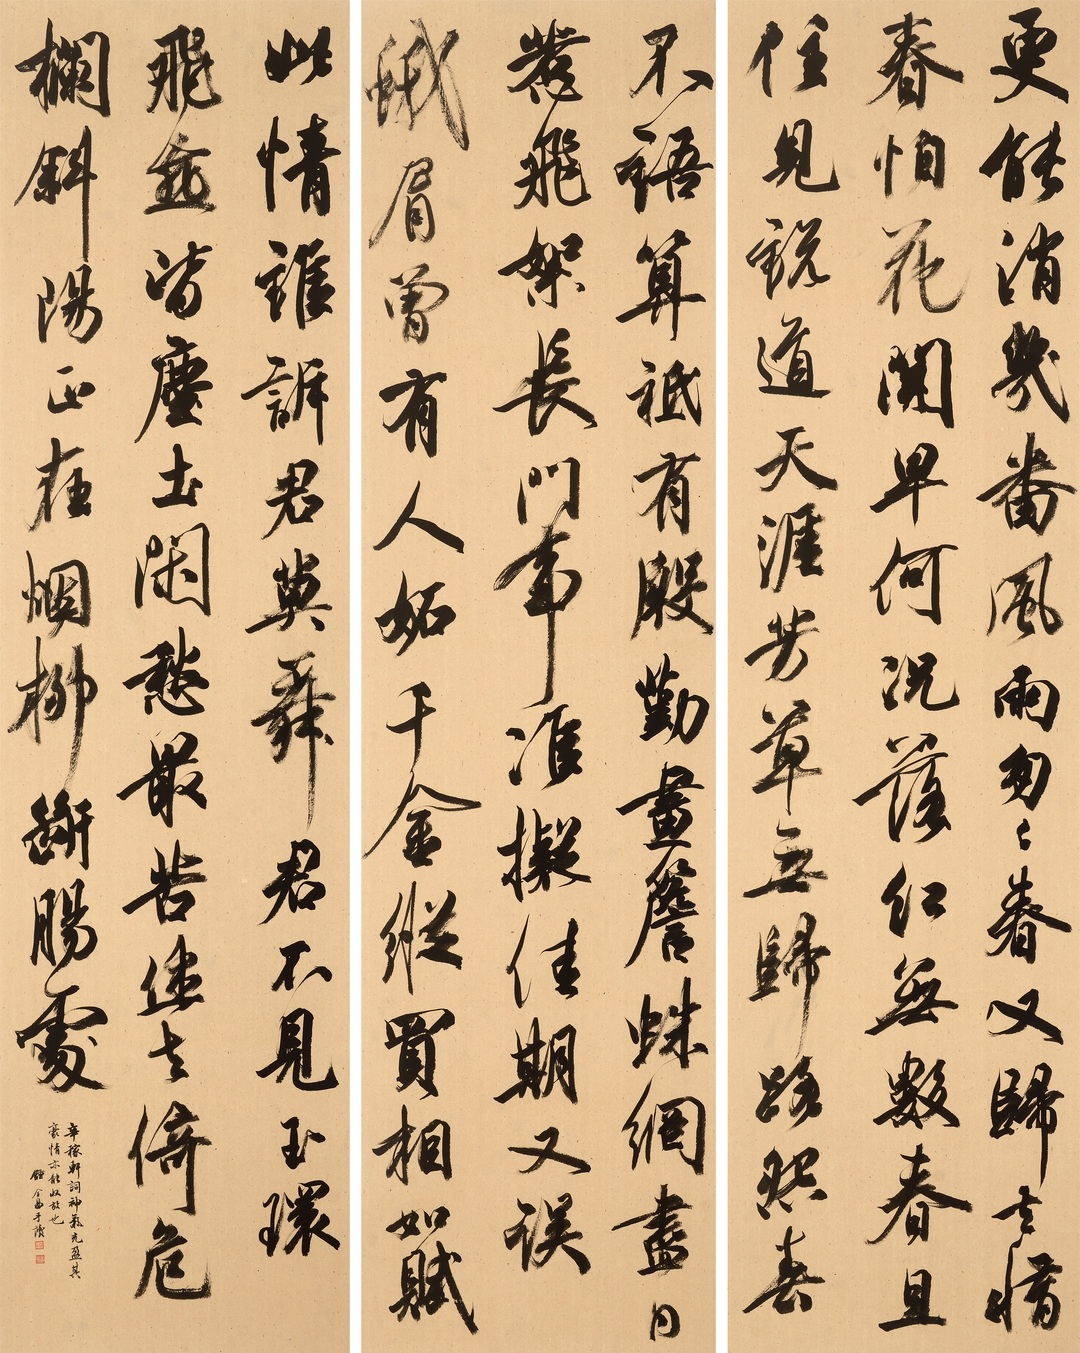 更能消幾番風雨匆〻春又歸去惜
春怕花開早何況落紅無數春且
住見說道天涯芳草無歸路怨春
不語算祇有殷勤畫簷蛛網盡日
惹飛絮長門事准擬佳期又誤
蛾眉曾有人妒千金縱買相如賦
此情誰訴君莫舞君不見玉環
飛燕皆塵土閑愁最苦去倚危
欄斜陽正在烟柳斷腸處
辛稼軒詞神氣充盈其
豪情亦能收放也